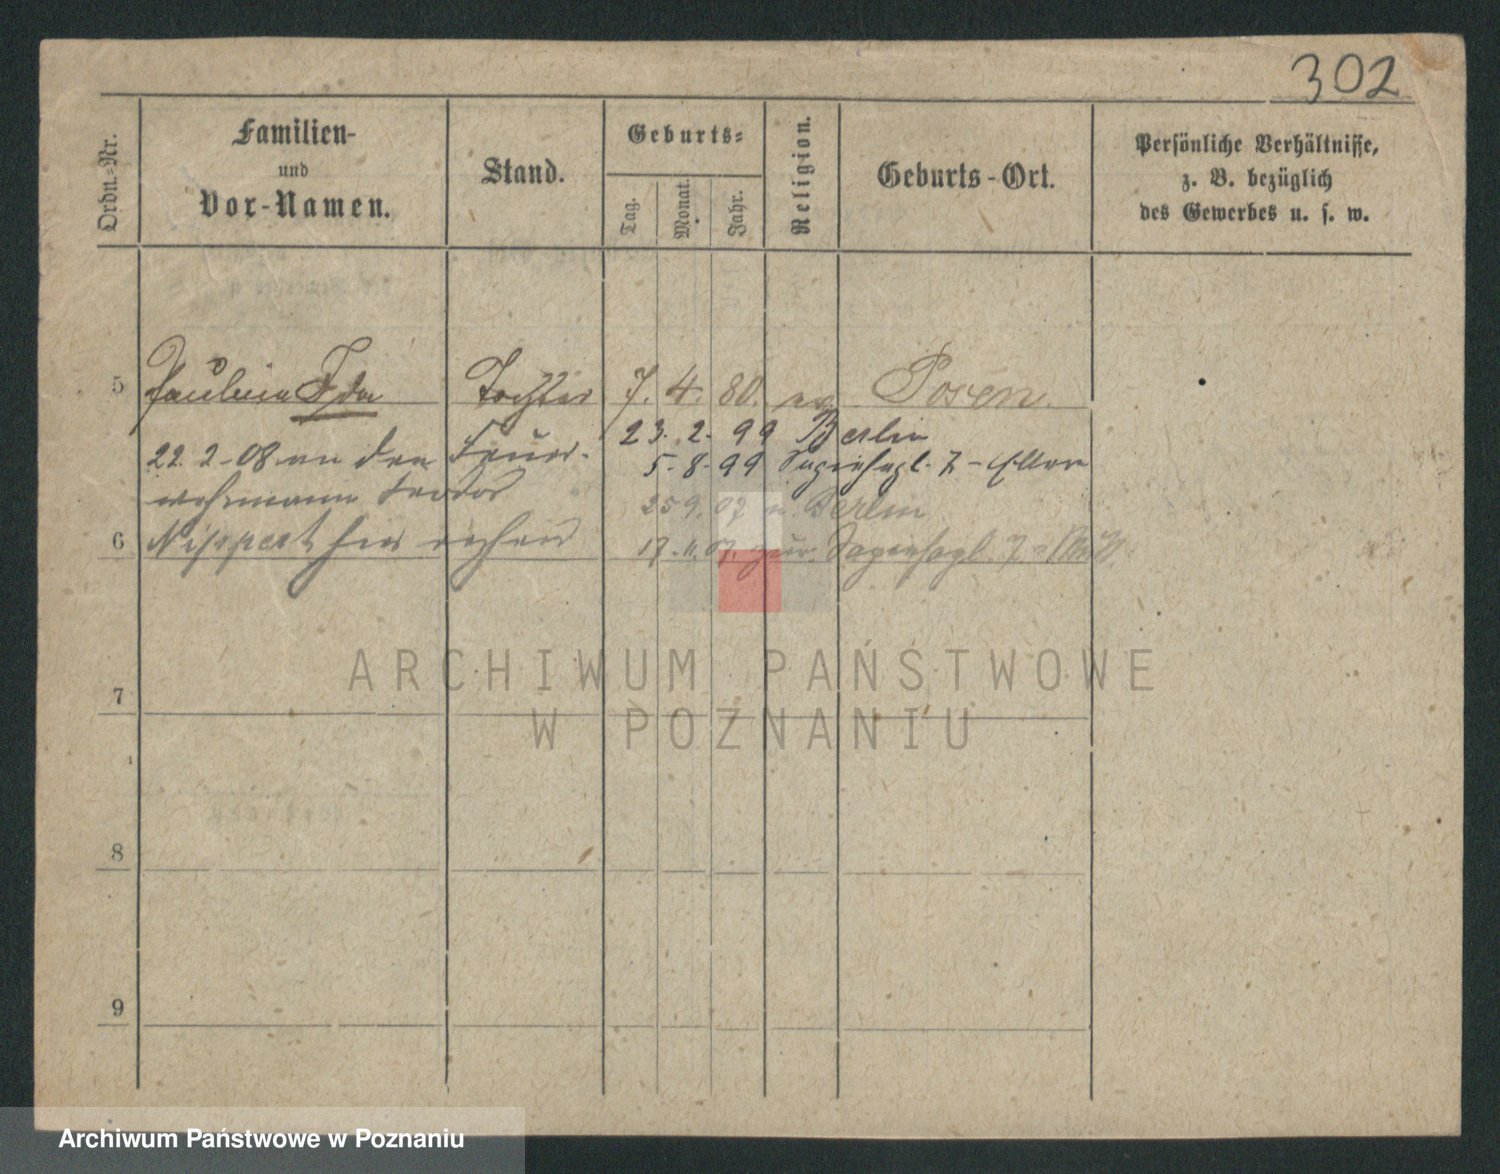 302
Ordn.-Nr.
Familien-
und
Vor-Namen.
Stand.
Geburts-
Tag.
Monat.
Jahr.
Religion.
Geburts-Ort.
Persönliche Verhältnisse,
z. B. bezüglich
des Gewerbes u. s. w.
5 Paulina Ida Tochter 7. 4. 80. ev Posen.
23. 2. 99 Berlin
22. 2-08 an den Feuer-
5-8-99 7 - Eltern
wehrmann Teodor
25 9. 07 n. Berlin
6 Nippert hier
17. 11. 07. zur. 7
7
8
9
ARCHIWUM PAŃSTWOWE
W POZNANIU
Archiwum Państwowe w Poznaniu